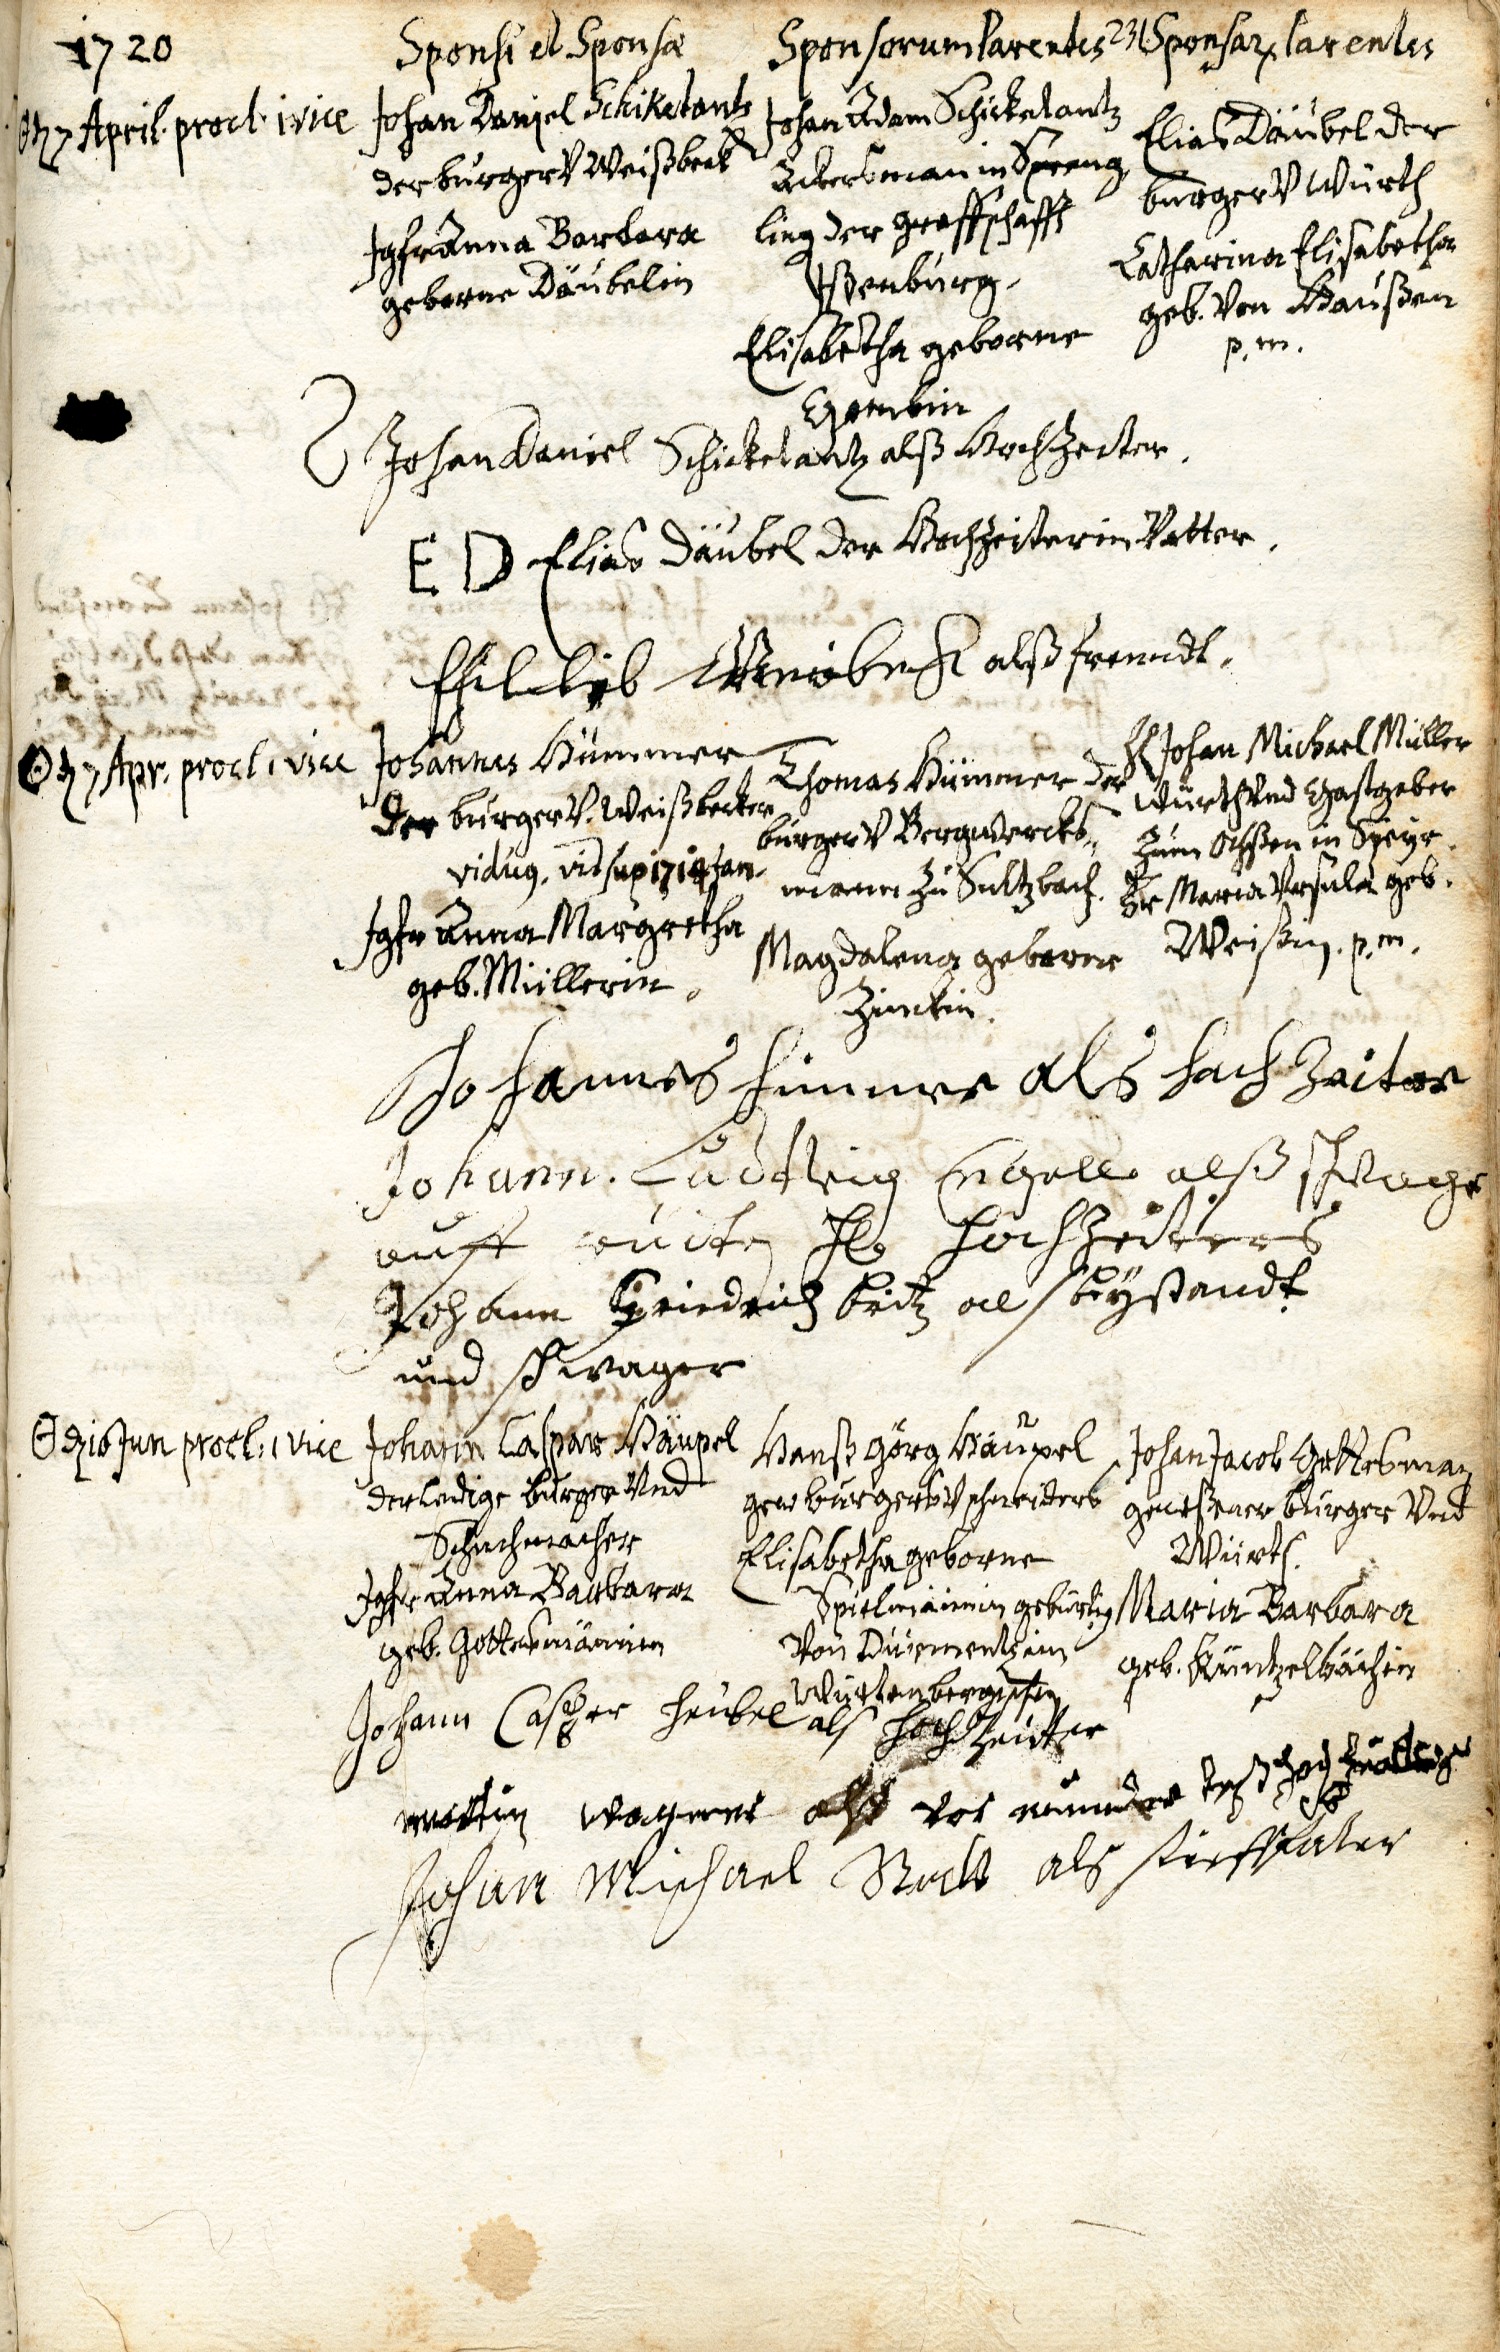 1720
Sponsi et Sponsæ
Sponsorum Parentes
231
Sponsar. Parentes
7 April. procl. 1 vice
Johan Daniel Schiketantz
der burger V Weißbeck
Jgfr Anna Barbara
geborne Däubelin
Johan Adam Schickedantz
Ackersman in Spreng
ling der Graffschafft
Ißenburg.
Elisabetha geborne
Elias Däubel der
burger V Würth
Catharina Elisabetha
geb. Von Haußen
p. m.
Johan Daniel Schickedantz alß Hochzeiter.
E D Elias Däubel der Hochzeiterin Vatter.
alß freundt.
7 Apr. procl. 1 vice
Johannes Hümmer
Der burger V. Weißbecker
viduus, vid sup 1714 Jan.
Jgfr Anna Margretha
geb. Müllerin.
Thomas Hümmer der
burger V Bergwercks
mann zu Sultzbach.
Magdalena geborne
H Johan Michael Müller
Würth Vnd Gastgeber
zum Ochßen in Speyr.
Fr Maria Vrsula geb.
Weißin. p. m.
Johannes himmer als hachzeiter
Johann. Ludtwig Engell alß schwager
auff seiten hochzeiters
Johann Friedrich britz als beystandt
und schwager
16 Jun procl. 1 vice
Johann Caspar Häupel
der ledige burger Vnd
Schuchmacher
Jgfr Anna Barbara
geb. Gottesmännin
Hanß Görg Häupel
gew burgers V schneiders
Elisabetha geborne
Spielmännin gebürtig
Von Dürmentz im
Würtenbergischen
Johan Jacob Gottesman
geweßener burger Vnd
Würth.
Maria Barbara
geb. Küntzelbächin
Johann Casper heubel als hochzeitter
martin wagner alß vor munder
Johan Michael als stieffvater